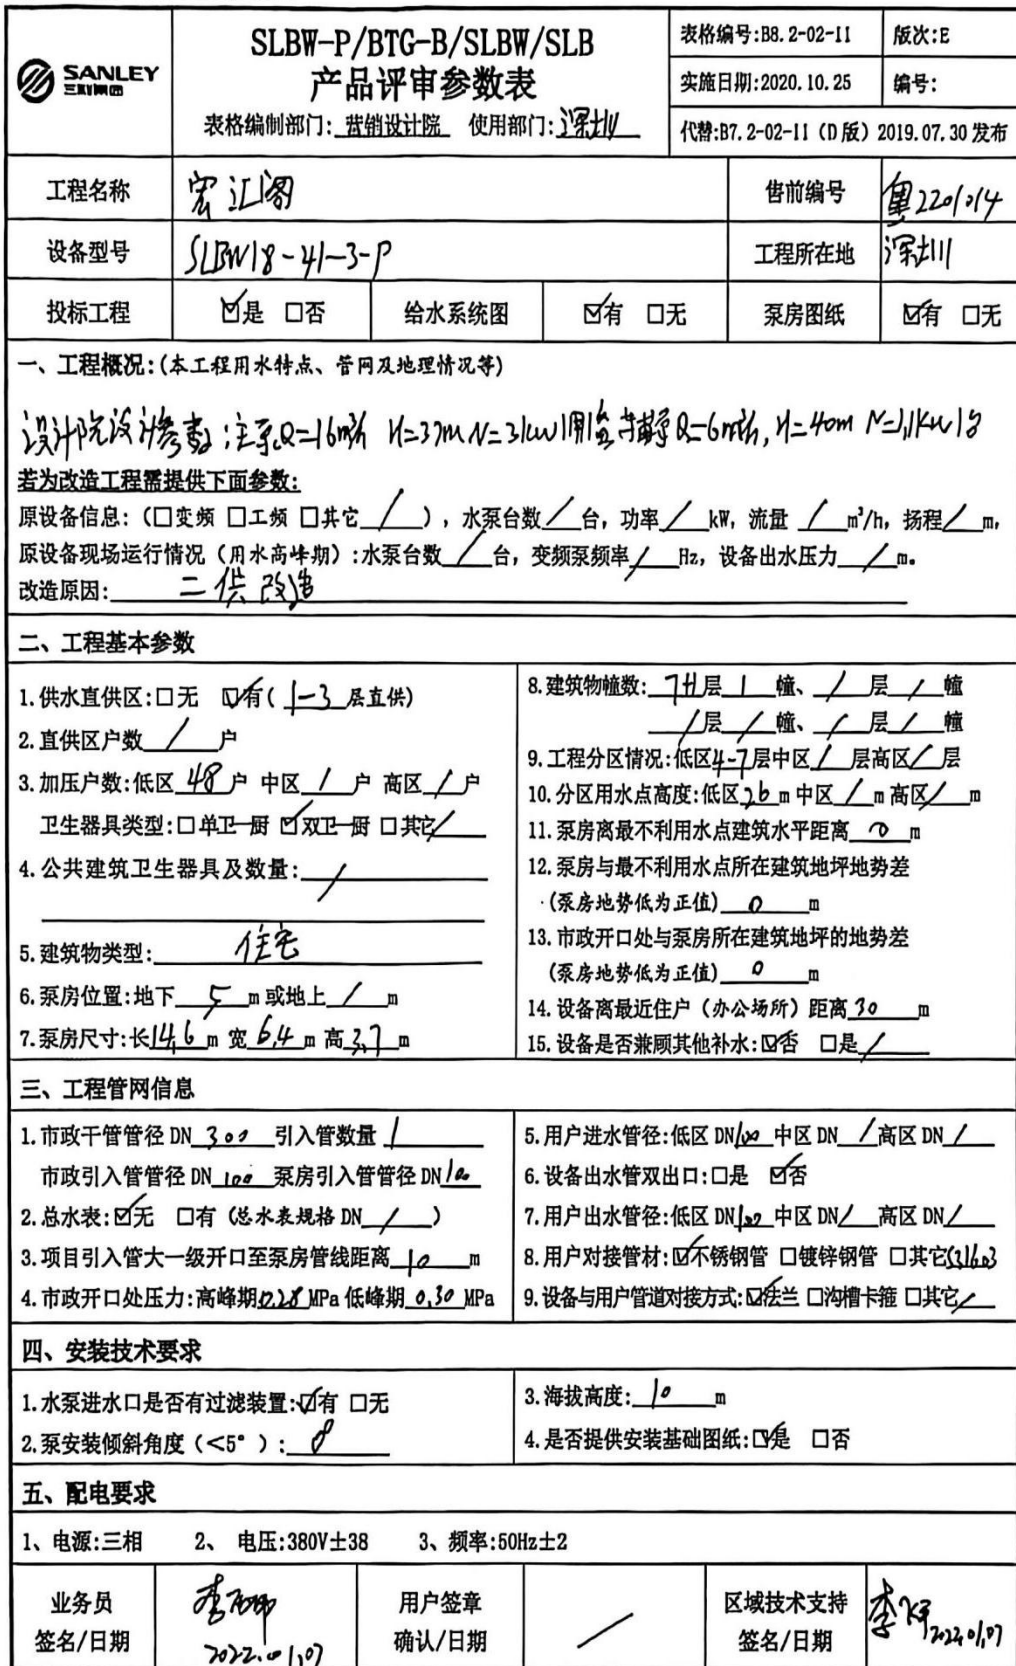 SANLEY
三利集团
SLBW-P/BTG-B/SLBW/SLB
产品评审参数表
表格编制部门:营销设计院 使用部门:深圳
表格编号:B8.2-02-11 版次:E
实施日期:2020.10.25 编号:
代替:B7.2-02-11（D版）2019.07.30发布
工程名称 宏汇阁 售前编号 2201014
设备型号 SLBW18-41-3-P 工程所在地 深圳
投标工程 ☑是 □否 给水系统图 ☑有 □无 泵房图纸 ☑有 □无
一、工程概况:(本工程用水特点、管网及地理情况等)
设计院设计参数:主泵Q=16m³/h H=37m N=3kw 1用1备 Q=6m³/h, H=40m N=1.1kw 1台
若为改造工程需提供下面参数:
原设备信息:（□变频 □工频 □其它 / ），水泵台数 / 台，功率 / kW，流量 / m³/h，扬程 / m，
原设备现场运行情况（用水高峰期）:水泵台数 / 台，变频泵频率 / Hz，设备出水压力 / m。
改造原因: 二供改造
二、工程基本参数
1.供水直供区:□无 ☑有( 1-3 层直供)
2.直供区户数 / 户
3.加压户数:低区 48 户 中区 / 户 高区 / 户
卫生器具类型:□单卫一厨 ☑双卫一厨 □其它 /
4.公共建筑卫生器具及数量: /
5.建筑物类型: 住宅
6.泵房位置:地下 5 m或地上 / m
7.泵房尺寸:长 14.6 m 宽 6.4 m 高 3.7 m
8.建筑物幢数: 层 1 幢、 / 层 / 幢
/ 层 / 幢、 / 层 / 幢
9.工程分区情况:低区 4-7 层中区 / 层高区 / 层
10.分区用水点高度:低区 26 m 中区 / m 高区 / m
11.泵房离最不利用水点建筑水平距离 0 m
12.泵房与最不利用水点所在建筑地坪地势差
(泵房地势低为正值) 0 m
13.市政开口处与泵房所在建筑地坪的地势差
(泵房地势低为正值) 0 m
14.设备离最近住户（办公场所）距离 30 m
15.设备是否兼顾其他补水:☑否 □是 /
三、工程管网信息
1.市政干管管径 DN 300 引入管数量 1
市政引入管管径 DN 100 泵房引入管管径 DN 100
2.总水表:☑无 □有（总水表规格 DN / ）
3.项目引入管大一级开口至泵房管线距离 10 m
4.市政开口处压力:高峰期 0.28 MPa 低峰期 0.30 MPa
5.用户进水管径:低区 DN 100 中区 DN / 高区 DN /
6.设备出水管双出口:□是 ☑否
7.用户出水管径:低区 DN 100 中区 DN / 高区 DN /
8.用户对接管材:☑不锈钢管 □镀锌钢管 □其它 S31603
9.设备与用户管道对接方式:☑法兰 □沟槽卡箍 □其它 /
四、安装技术要求
1.水泵进水口是否有过滤装置:☑有 □无
2.泵安装倾斜角度（<5°）: 0
3.海拔高度: 10 m
4.是否提供安装基础图纸:☑是 □否
五、配电要求
1、电源:三相 2、 电压:380V±38 3、频率:50Hz±2
业务员 签名/日期 2022.01.07 用户签章 确认/日期 / 区域技术支持 签名/日期 2022.01.07